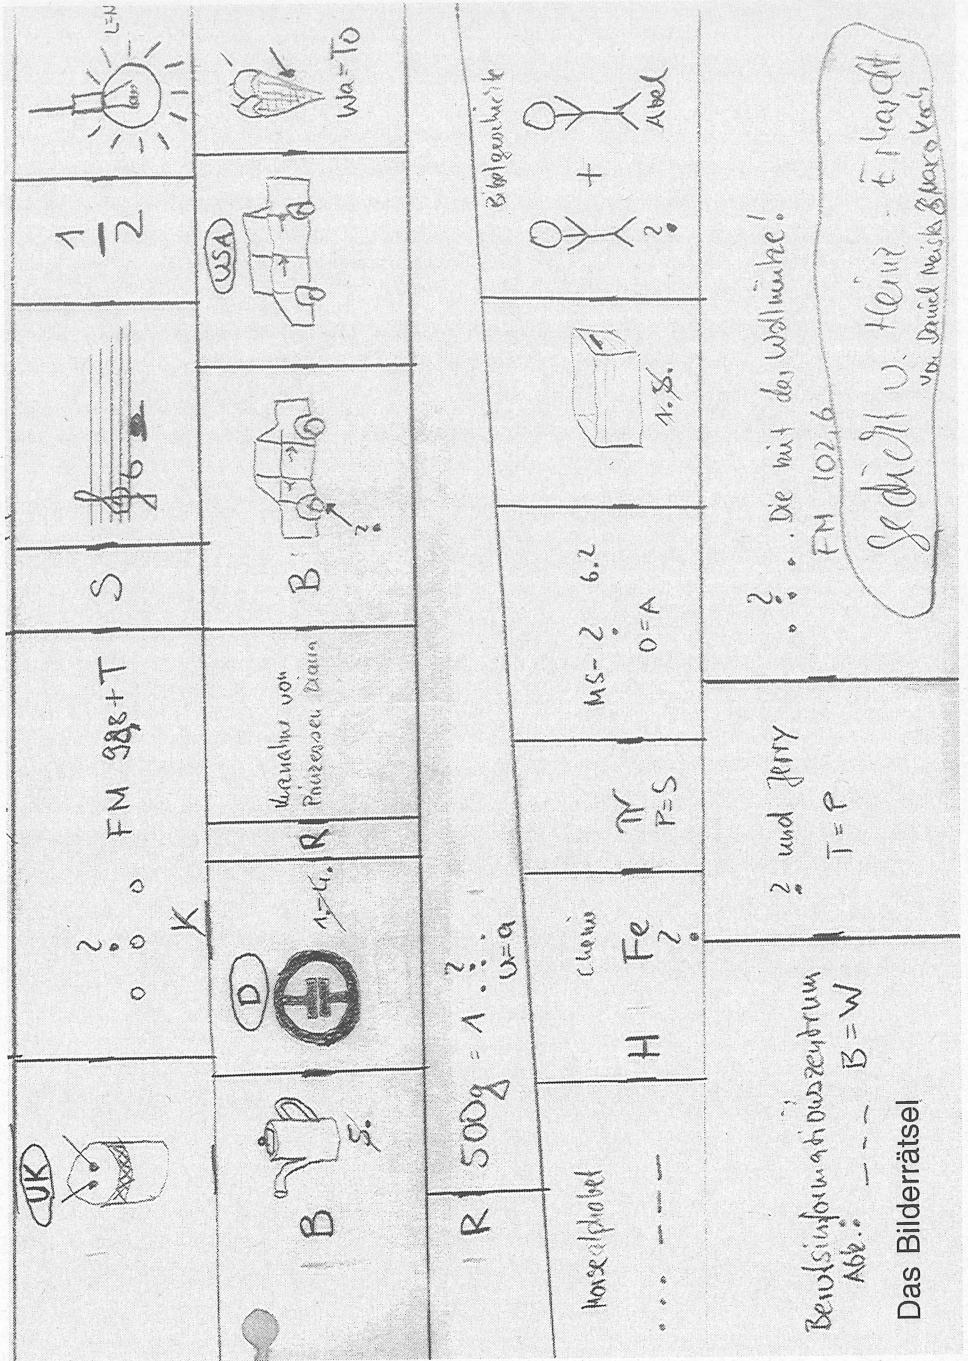 UK
? FM 98,8+T
K
S
1
2
L=N
B
5.
D
1.-4.
R
Vorname von
Prinzessin Diana
B
?
USA
Wa=To
R
500g = 1 ?
U=a
Morsealphabet
... --- ---
Chemie
H Fe
?
π
P=S
MS- ? 6.2
O=A
1. 8.
Bibelgeschichte
? + Abel
Berufsinformationszentrum
Abk.: --- B=W
? und Jerry
T=P
? ... Die mit das Wollmütze!
FM 102,6
Gedicht v. Heinz - Erhardt
Das Bilderrätsel